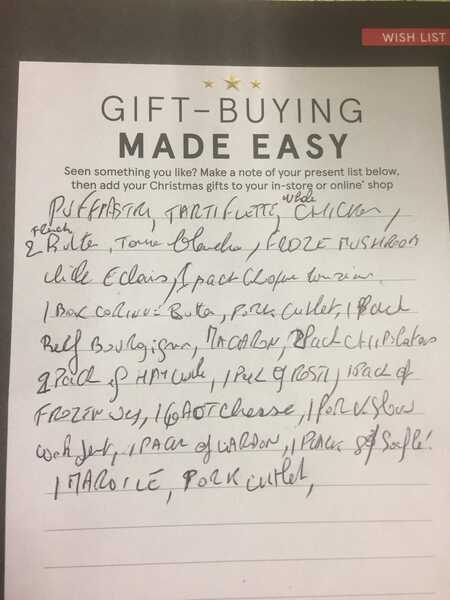 WISH LIST
GIFT–BUYING
MADE EASY
Seen something you like? Make a note of your present list below,
then add your Christmas gifts to your in-store or online* shop
PUFFPASTRI, TARTIFLETTE, whole CHICKEN,
French
2 Butter, Tome blanche, FROZE MUSHROOM
Eclairs, 1 pack
1 Box Butter, PORK cutlet, 1 pack
Beef Bourgignon, MACARON, 2 Pack CHIPOLATAS
2 Pack of, 1 Pack of ROSTI, 1 Pack of
FROZEN, 1 GOAT Cheese, 1 PORK slow
cook, 1 PACK of LARDON, 1 PACK of Souflé!
1 MAROILE, PORK cutlet,